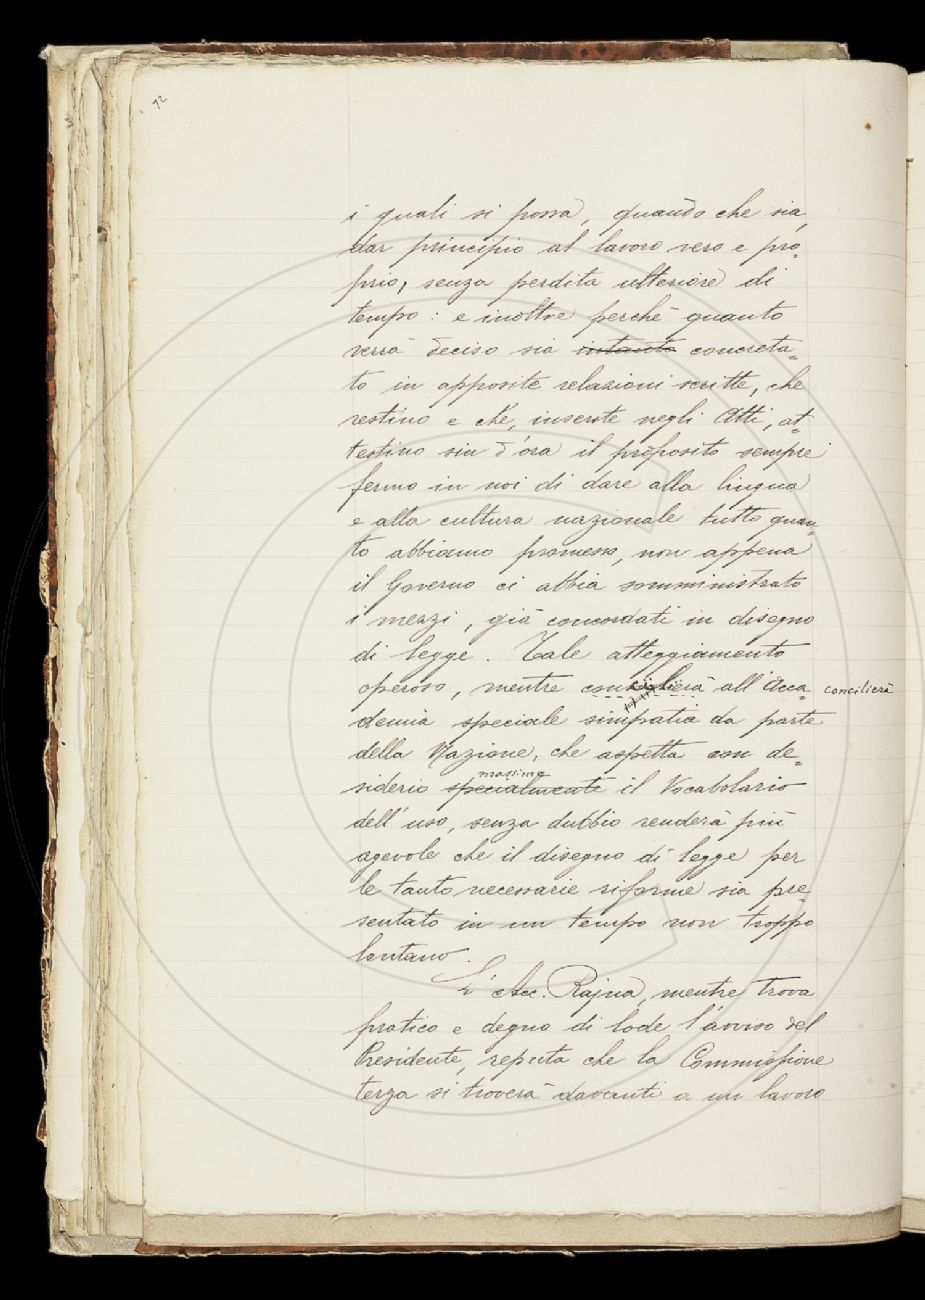 12
i quali si possa, quando che sia,
dar principio al lavoro vero e pro-
prio, senza perdita ulteriore di
tempo: e inoltre perchè quanto
verrà deciso sia intanto concreta-
to in apposite relazioni scritte, che
restino e che, inserite negli Atti, at-
testino sin d'ora il proposito sempre
fermo in noi di dare alla lingua
e alla cultura nazionale tutto quan-
to abbiamo promesso, non appena
il Governo ci abbia somministrato
i mezzi, già concordati in disegno
di legge. Tale atteggiamento
operoso, mentre all'Acca- concilierà
demia speciale simpatia da parte
della Nazione, che aspetta con de-
massime
siderio specialmente il Vocabolario
dell'uso, senza dubbio renderà più
agevole che il disegno di legge per
le tanto necessarie riforme sia pre-
sentato in un tempo non troppo
lontano.
L'Acc. Rajna, mentre trova
pratico e degno di lode l'avviso del
Presidente, reputa che la Commissione
terza si troverà davanti a un lavoro